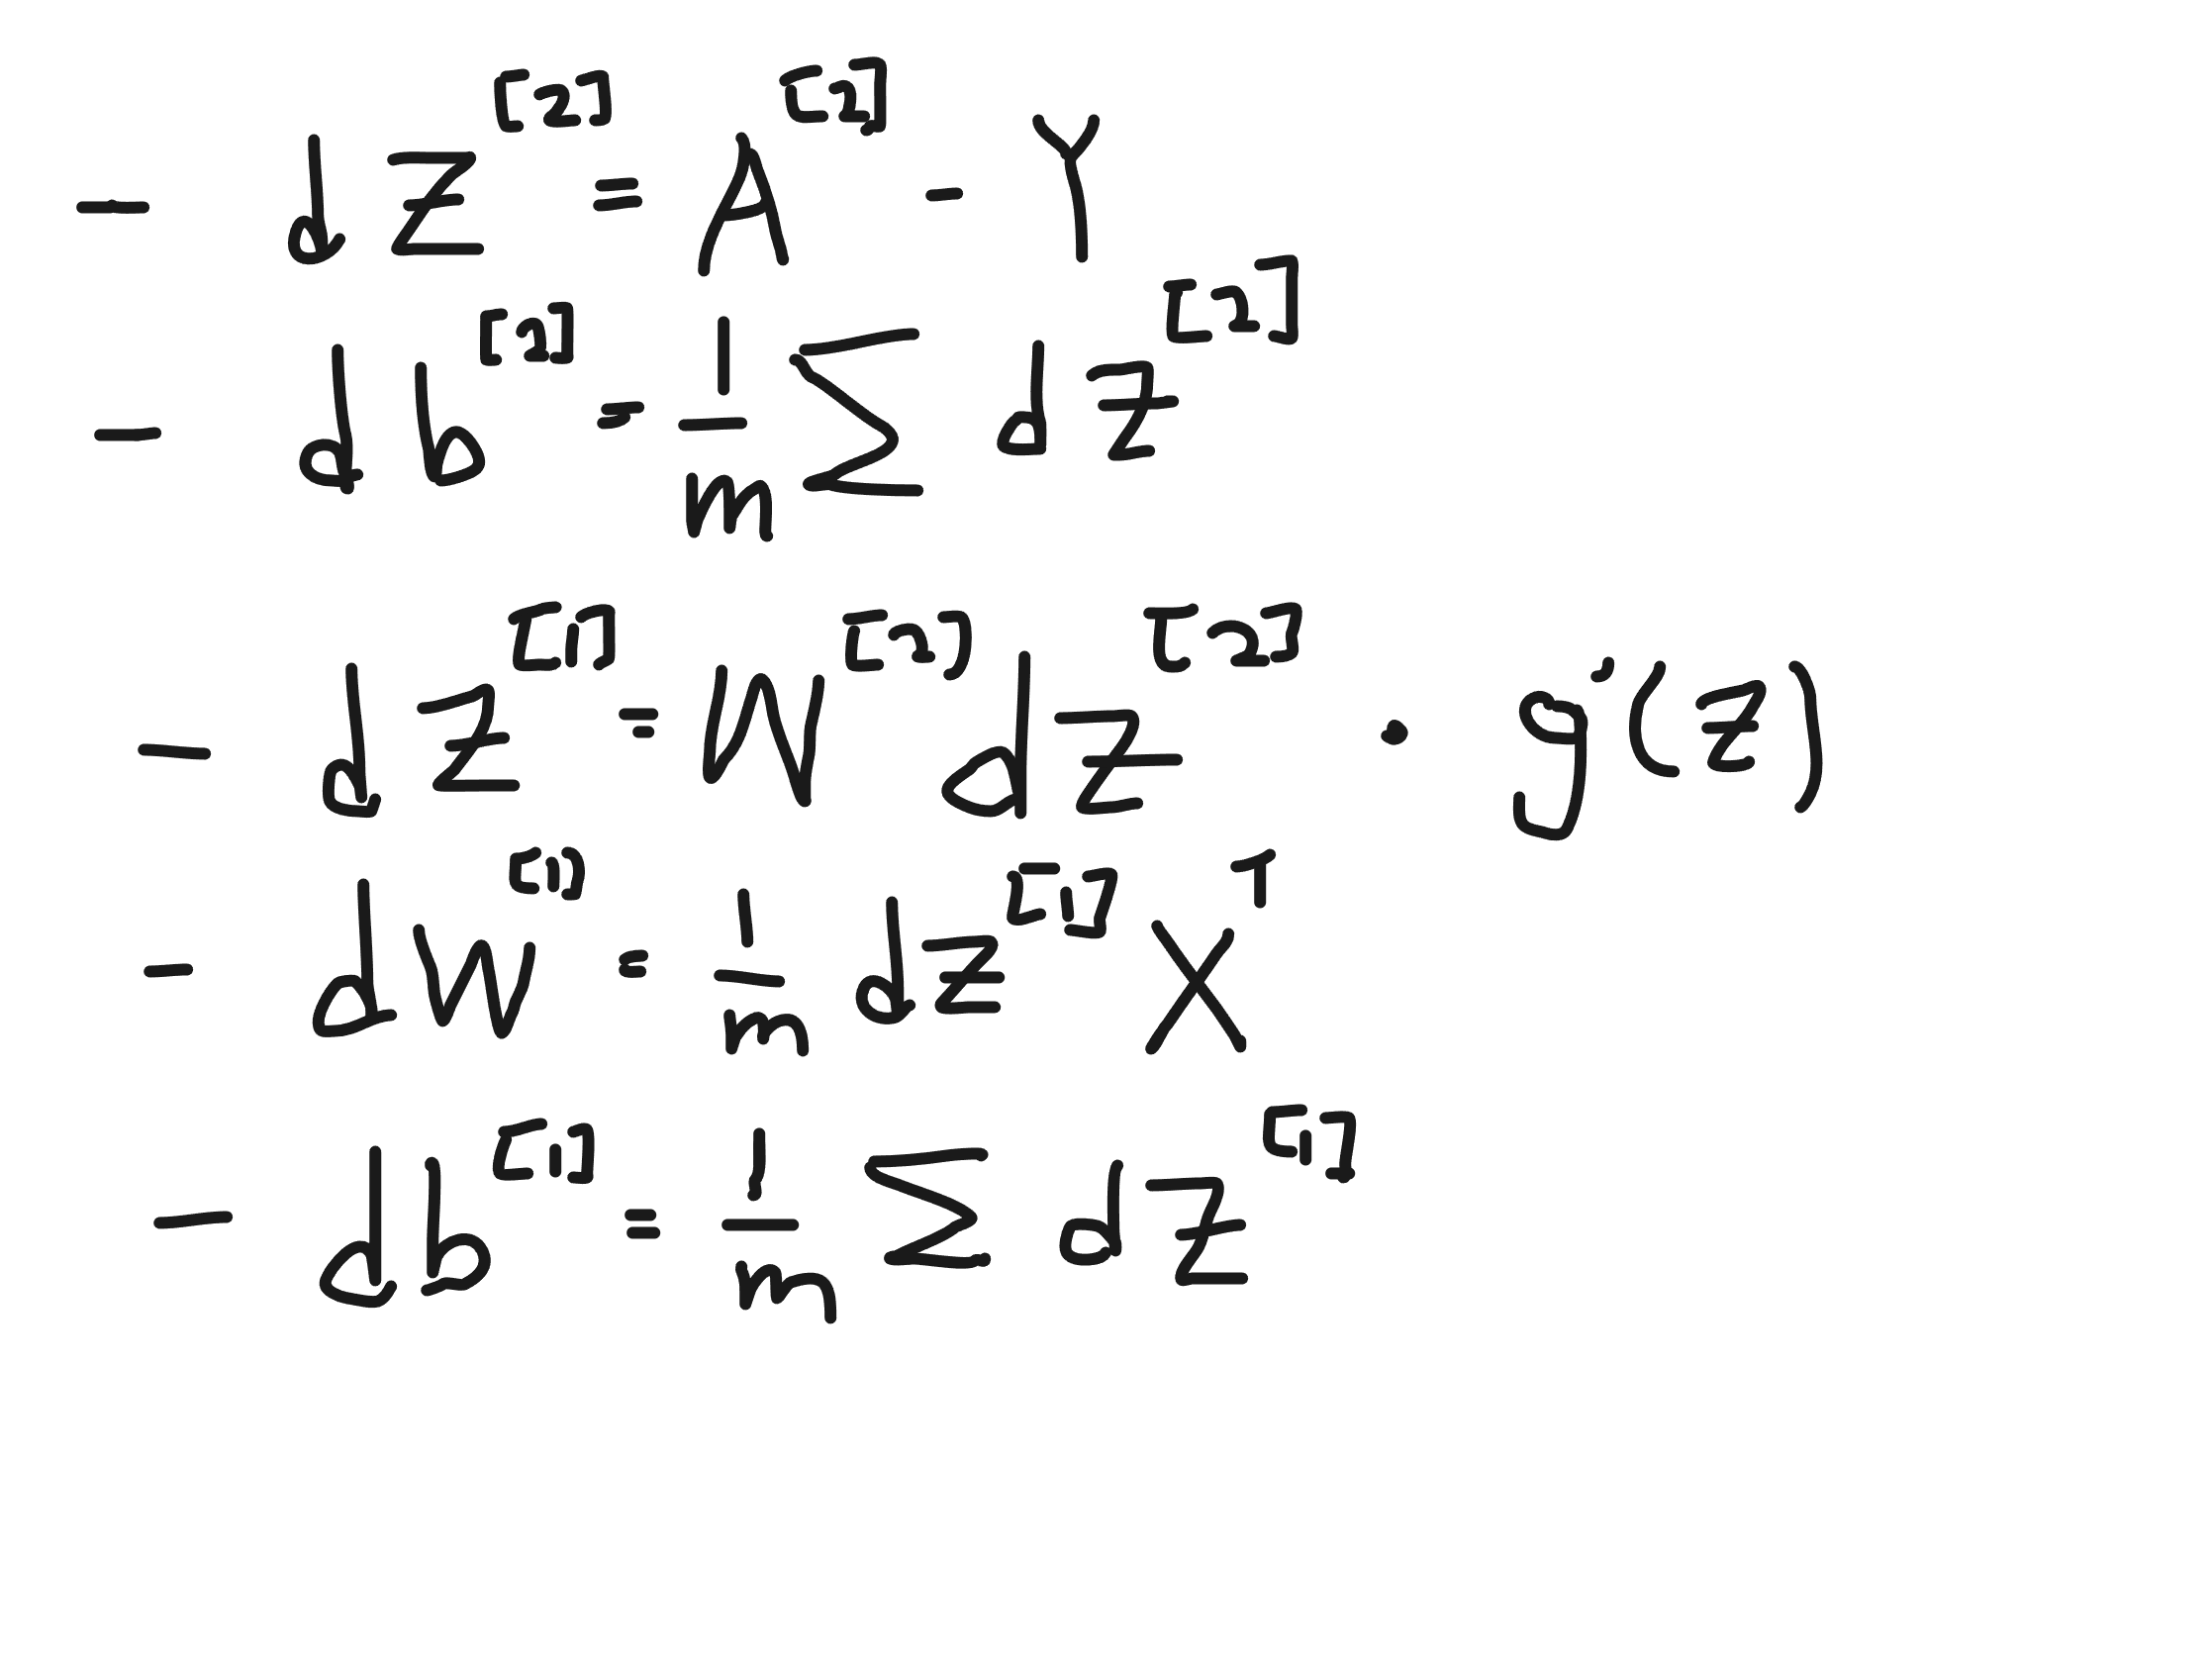 - dZ^[2] = A^[2] - Y
- db^[2] = 1/m Σ dZ^[2]
- dZ^[1] = W^[2] dZ^[2] · g'(Z)
- dW^[1] = 1/m dZ^[1] X^T
- db^[1] = 1/m Σ dZ^[1]